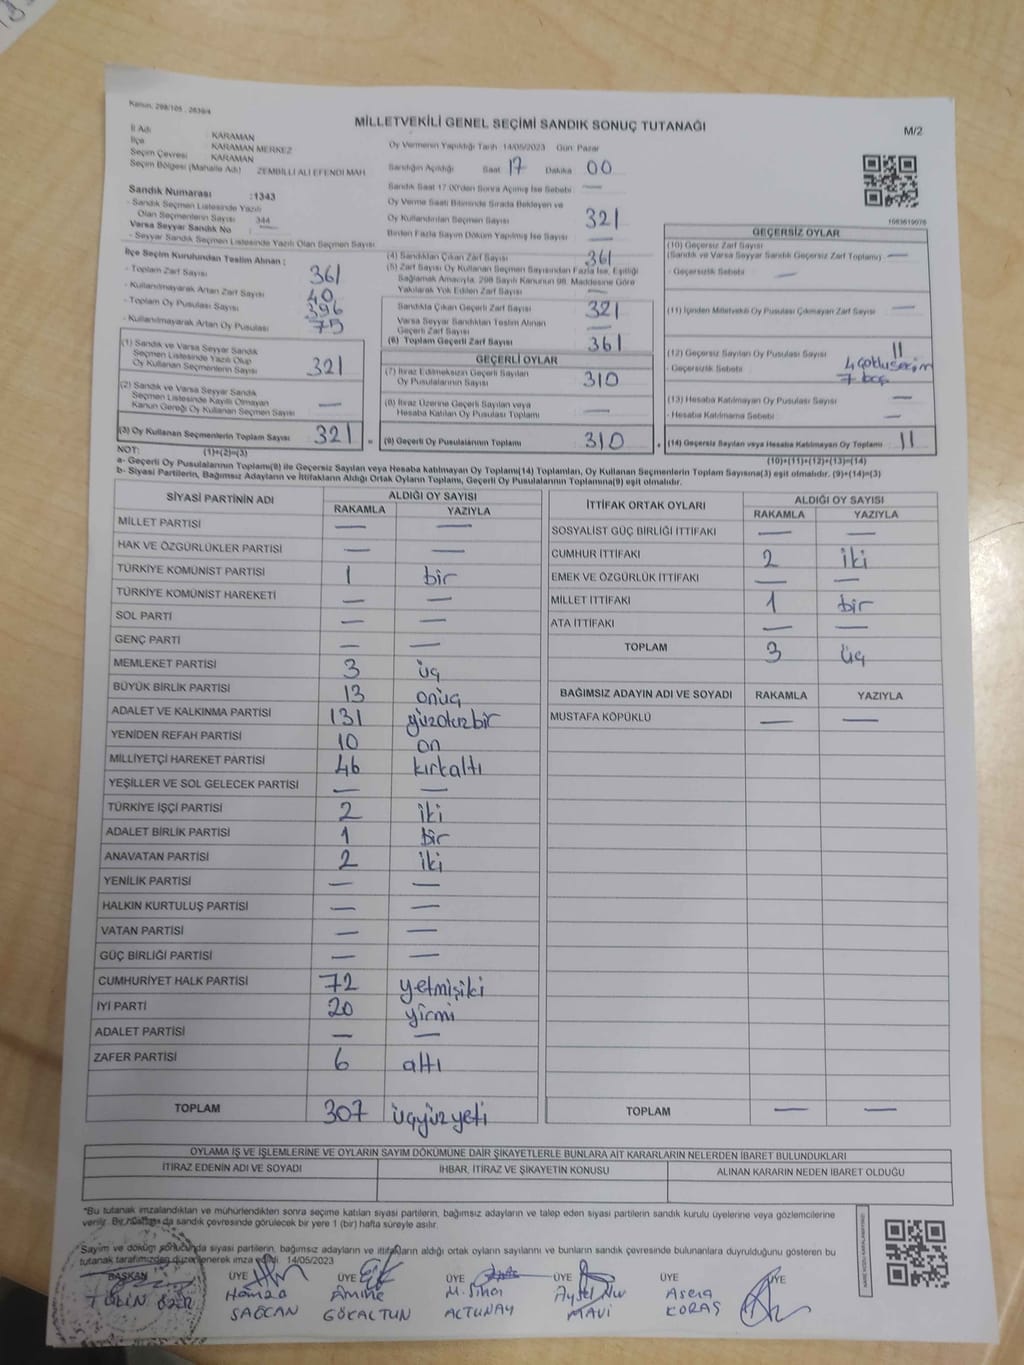 Kanun, 298/105 , 2839/4
MİLLETVEKİLİ GENEL SEÇİMİ SANDIK SONUÇ TUTANAĞI
M/2
İl Adı : KARAMAN
İlçe : KARAMAN MERKEZ
Seçim Çevresi : KARAMAN
Seçim Bölgesi (Mahalle Adı) : ZEMBİLLİ ALİ EFENDİ MAH.
Sandık Numarası :1343
- Sandık Seçmen Listesinde Yazılı
Olan Seçmenlerin Sayısı : 344
Varsa Seyyar Sandık No : —
- Seyyar Sandık Seçmen Listesinde Yazılı Olan Seçmen Sayısı:
Oy Vermenin Yapıldığı Tarih 14/05/2023 Gün: Pazar
Sandığın Açıldığı Saat 17 Dakika 00
Sandık Saat 17.00'den Sonra Açılmış İse Sebebi : —
Oy Verme Saati Bitiminde Sırada Bekleyen ve
Oy Kullandırılan Seçmen Sayısı 321
Birden Fazla Sayım Döküm Yapılmış İse Sayısı —
1083619076
İlçe Seçim Kurulundan Teslim Alınan ;
- Toplam Zarf Sayısı 361
- Kullanılmayarak Artan Zarf Sayısı 40
- Toplam Oy Pusulası Sayısı 396
- Kullanılmayarak Artan Oy Pusulası 75
(1) Sandık ve Varsa Seyyar Sandık
Seçmen Listesinde Yazılı Olup
Oy Kullanan Seçmenlerin Sayısı 321
(2) Sandık ve Varsa Seyyar Sandık
Seçmen Listesinde Kayıtlı Olmayan
Kanun Gereği Oy Kullanan Seçmen Sayısı —
(3) Oy Kullanan Seçmenlerin Toplam Sayısı 321
(1)+(2)=(3)
(4) Sandıktan Çıkan Zarf Sayısı 361
(5) Zarf Sayısı Oy Kullanan Seçmen Sayısından Fazla İse, Eşitliği
Sağlamak Amacıyla, 298 Sayılı Kanunun 98. Maddesine Göre
Yakılarak Yok Edilen Zarf Sayısı —
Sandıkta Çıkan Geçerli Zarf Sayısı 321
Varsa Seyyar Sandıktan Teslim Alınan
Geçerli Zarf Sayısı —
(6) Toplam Geçerli Zarf Sayısı 361
GEÇERLİ OYLAR
(7) İtiraz Edilmeksizin Geçerli Sayılan
Oy Pusulalarının Sayısı 310
(8) İtiraz Üzerine Geçerli Sayılan veya
Hesaba Katılan Oy Pusulası Toplamı —
(9) Geçerli Oy Pusulalarının Toplamı 310
GEÇERSİZ OYLAR
(10) Geçersiz Zarf Sayısı
(Sandık ve Varsa Seyyar Sandık Geçersiz Zarf Toplamı) —
- Geçersizlik Sebebi : —
(11) İçinden Milletvekili Oy Pusulası Çıkmayan Zarf Sayısı —
(12) Geçersiz Sayılan Oy Pusulası Sayısı 11
- Geçersizlik Sebebi 4 çoklu seçim
7 boş
(13) Hesaba Katılmayan Oy Pusulası Sayısı —
- Hesaba Katılmama Sebebi : —
(14) Geçersiz Sayılan veya Hesaba Katılmayan Oy Toplamı 11
(10)+(11)+(12)+(13)=(14)
NOT:
a- Geçerli Oy Pusulalarının Toplamı(9) ile Geçersiz Sayılan veya Hesaba Katılmayan Oy Toplamı(14) Toplamları, Oy Kullanan Seçmenlerin Toplam Sayısına(3) eşit olmalıdır. (9)+(14)=(3)
b- Siyasi Partilerin, Bağımsız Adayların ve İttifakların Aldığı Ortak Oyların Toplamı, Geçerli Oy Pusulalarının Toplamına(9) eşit olmalıdır.
SİYASİ PARTİNİN ADI ALDIĞI OY SAYISI
RAKAMLA YAZIYLA
MİLLET PARTİSİ — —
HAK VE ÖZGÜRLÜKLER PARTİSİ — —
TÜRKİYE KOMÜNİST PARTİSİ 1 bir
TÜRKİYE KOMÜNİST HAREKETİ — —
SOL PARTİ — —
GENÇ PARTİ — —
MEMLEKET PARTİSİ 3 üç
BÜYÜK BİRLİK PARTİSİ 13 onüç
ADALET VE KALKINMA PARTİSİ 131 yüzotuzbir
YENİDEN REFAH PARTİSİ 10 on
MİLLİYETÇİ HAREKET PARTİSİ 46 kırkaltı
YEŞİLLER VE SOL GELECEK PARTİSİ — —
TÜRKİYE İŞÇİ PARTİSİ 2 iki
ADALET BİRLİK PARTİSİ 1 bir
ANAVATAN PARTİSİ 2 iki
YENİLİK PARTİSİ — —
HALKIN KURTULUŞ PARTİSİ — —
VATAN PARTİSİ — —
GÜÇ BİRLİĞİ PARTİSİ — —
CUMHURİYET HALK PARTİSİ 72 yetmişiki
İYİ PARTİ 20 yirmi
ADALET PARTİSİ — —
ZAFER PARTİSİ 6 altı
TOPLAM 307 üçyüzyeti
İTTİFAK ORTAK OYLARI ALDIĞI OY SAYISI
RAKAMLA YAZIYLA
SOSYALİST GÜÇ BİRLİĞİ İTTİFAKI — —
CUMHUR İTTİFAKI 2 iki
EMEK VE ÖZGÜRLÜK İTTİFAKI — —
MİLLET İTTİFAKI 1 bir
ATA İTTİFAKI — —
TOPLAM 3 üç
BAĞIMSIZ ADAYIN ADI VE SOYADI RAKAMLA YAZIYLA
MUSTAFA KÖPÜKLÜ — —
TOPLAM — —
OYLAMA İŞ VE İŞLEMLERİNE VE OYLARIN SAYIM DÖKÜMÜNE DAİR ŞİKAYETLERLE BUNLARA AİT KARARLARIN NELERDEN İBARET BULUNDUKLARI
İTİRAZ EDENİN ADI VE SOYADI İHBAR, İTİRAZ VE ŞİKAYETİN KONUSU ALINAN KARARIN NEDEN İBARET OLDUĞU
"Bu tutanak imzalandıktan ve mühürlendikten sonra seçime katılan siyasi partilerin, bağımsız adayların ve talep eden siyasi partilerin sandık kurulu üyelerine veya gözlemcilerine
verilir. Bir nüshası da sandık çevresinde görülecek bir yere 1 (bir) hafta süreyle asılır.
"Sayım ve döküm sonucunda siyasi partilerin, bağımsız adayların ve ittifakların aldığı ortak oyların sayılarını ve bunların sandık çevresinde bulunanlara duyrulduğunu gösteren bu
tutanak tarafımızdan düzenlenerek imza edildi. 14/05/2023
BAŞKAN ÜYE ÜYE ÜYE ÜYE ÜYE ÜYE
Hamza Emine Aysel Nur
SAĞCAN GÖKALTUN ALTUNAY MAVİ KORAŞ